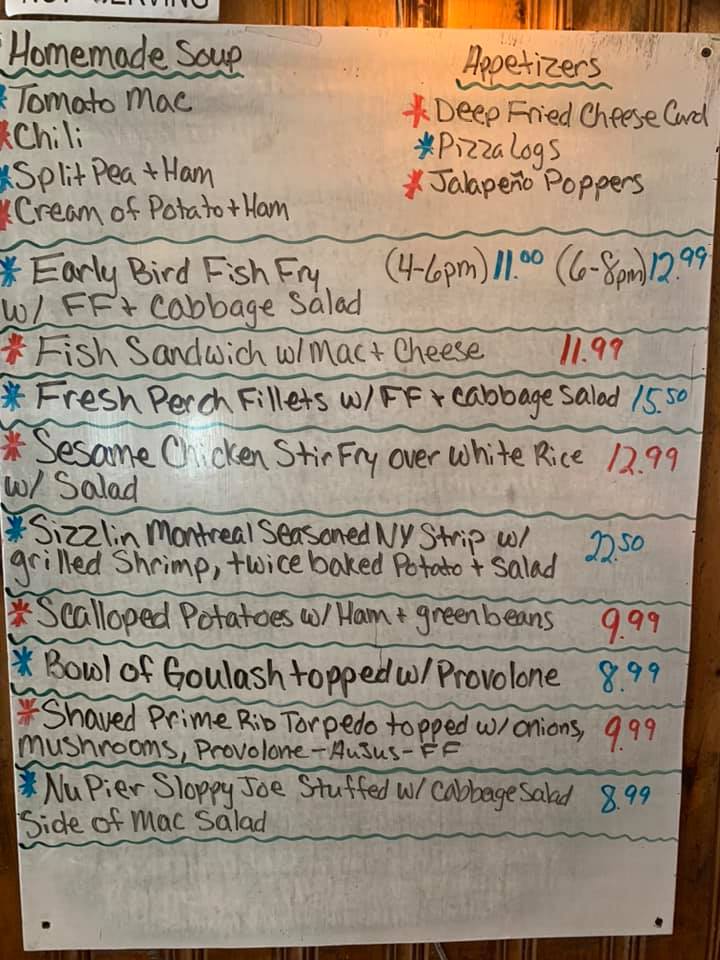 Homemade Soup
* Tomato Mac
* Chili
* Split Pea + Ham
* Cream of Potato + Ham
Appetizers
* Deep Fried Cheese Curd
* Pizza Logs
* Jalapeño Poppers
* Early Bird Fish Fry (4-6pm) 11.00 (6-8pm) 12.99
w/ FF + Cabbage Salad
* Fish Sandwich w/ Mac + Cheese 11.99
* Fresh Perch Fillets w/ FF + Cabbage Salad 15.50
* Sesame Chicken Stir Fry over White Rice 12.99
w/ Salad
* Sizzlin Montreal Seasoned NY Strip w/ 22.50
grilled Shrimp, twice baked Potato + Salad
* Scalloped Potatoes w/ Ham + greenbeans 9.99
* Bowl of Goulash topped w/ Provolone 8.99
* Shaved Prime Rib Torpedo topped w/ onions, 9.99
mushrooms, Provolone - AuJus - FF
* Nu Pier Sloppy Joe Stuffed w/ Cabbage Salad 8.99
Side of Mac Salad